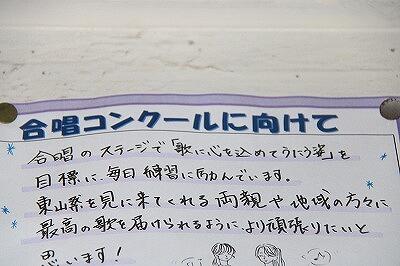 合唱コンクールに向けて
合唱のステージで「歌に心を込めてうたう姿」を
目標に、毎日練習に励んでいます。
東山祭を見に来てくれる両親や地域の方々に
最高の歌を届けられるように、より頑張りたいと
思います！